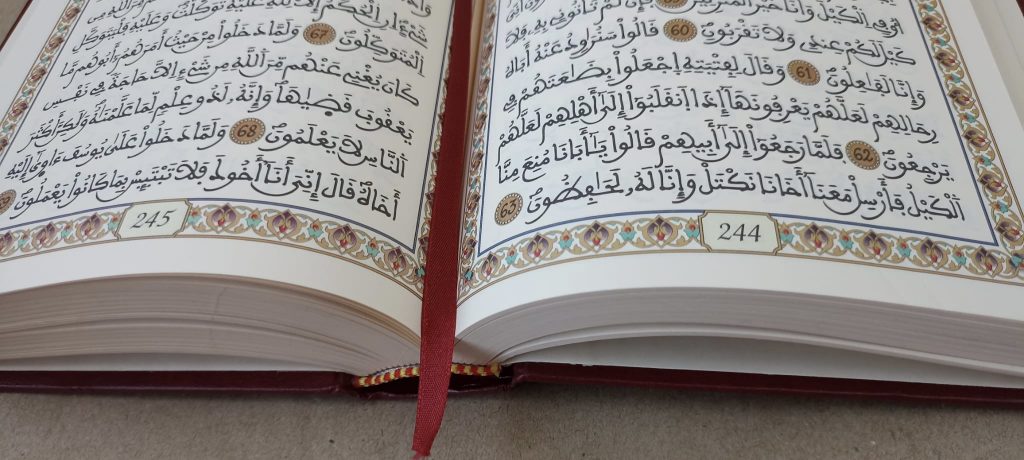 أُوفِي الْكَيْلَ وَأَنَا خَيْرُ الْمُنزِلِينَ فَإِن لَّمْ تَاتُونِي بِهِ فَلَا
كَيْلَ لَكُمْ عِندِي وَلَا تَقْرَبُونِ 60 قَالُوا سَنُرَاوِدُ عَنْهُ أَبَاهُ
وَإِنَّا لَفَاعِلُونَ 61 وَقَالَ لِفِتْيَتِهِ اِجْعَلُوا بِضَاعَتَهُمْ فِي
رِحَالِهِمْ لَعَلَّهُمْ يَعْرِفُونَهَا إِذَا اَنقَلَبُوا إِلَى أَهْلِهِمْ لَعَلَّهُمْ
يَرْجِعُونَ 62 فَلَمَّا رَجَعُوا إِلَى أَبِيهِمْ قَالُوا يَا أَبَانَا مُنِعَ مِنَّا
الْكَيْلُ فَأَرْسِلْ مَعَنَا أَخَانَا نَكْتَلْ وَإِنَّا لَهُ لَحَافِظُونَ 63
244
شَيْءٍ اِنِ الْحُكْمُ إِلَّا لِلَّهِ عَلَيْهِ تَوَكَّلْتُ وَعَلَيْهِ فَلْيَتَوَكَّلِ
الْمُتَوَكِّلُونَ 67 وَلَمَّا دَخَلُوا مِنْ حَيْثُ أَمَرَهُمْ أَبُوهُم مَّا
كَانَ يُغْنِي عَنْهُم مِّنَ اللَّهِ مِن شَيْءٍ اِلَّا حَاجَةً فِي نَفْسِ
يَعْقُوبَ قَضَيٰهَا وَإِنَّهُ لَذُو عِلْمٍ لِّمَا عَلَّمْنَاهُ وَلَكِنَّ أَكْثَرَ
النَّاسِ لَا يَعْلَمُونَ 68 وَلَمَّا دَخَلُوا عَلَى يُوسُفَ ءَاوَى إِلَيْهِ
أَخَاهُ قَالَ إِنِّيَ أَنَا أَخُوكَ فَلَا تَبْتَئِسْ بِمَا كَانُوا يَعْمَلُونَ
245